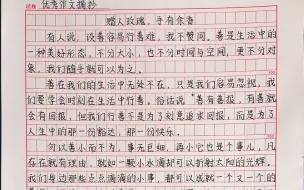 优秀作文摘抄
赠人玫瑰，手有余香
有人说，说善容易行善难，我不赞同，善是生活中的
一种美好形态，不分大小，也不分时间与空间，更不分对
象，我们随手就可以为之。
善在我们的生活中无处不在，只是我们容易忽视，我
们要学会时刻在生活中行善，俗话说"善有善报，有善就
会有回报，但我们行善不是为了刻意追求回报，而是为了
人生中的那一份豁达，那一份快乐。
勿以善小而不为，事无巨细，再小它也是个事儿，凡
存在就有理由，就如一颗小水滴却可折射太阳的光辉，
我们身边那些点点滴滴的小事，都可以成就一个又一个的